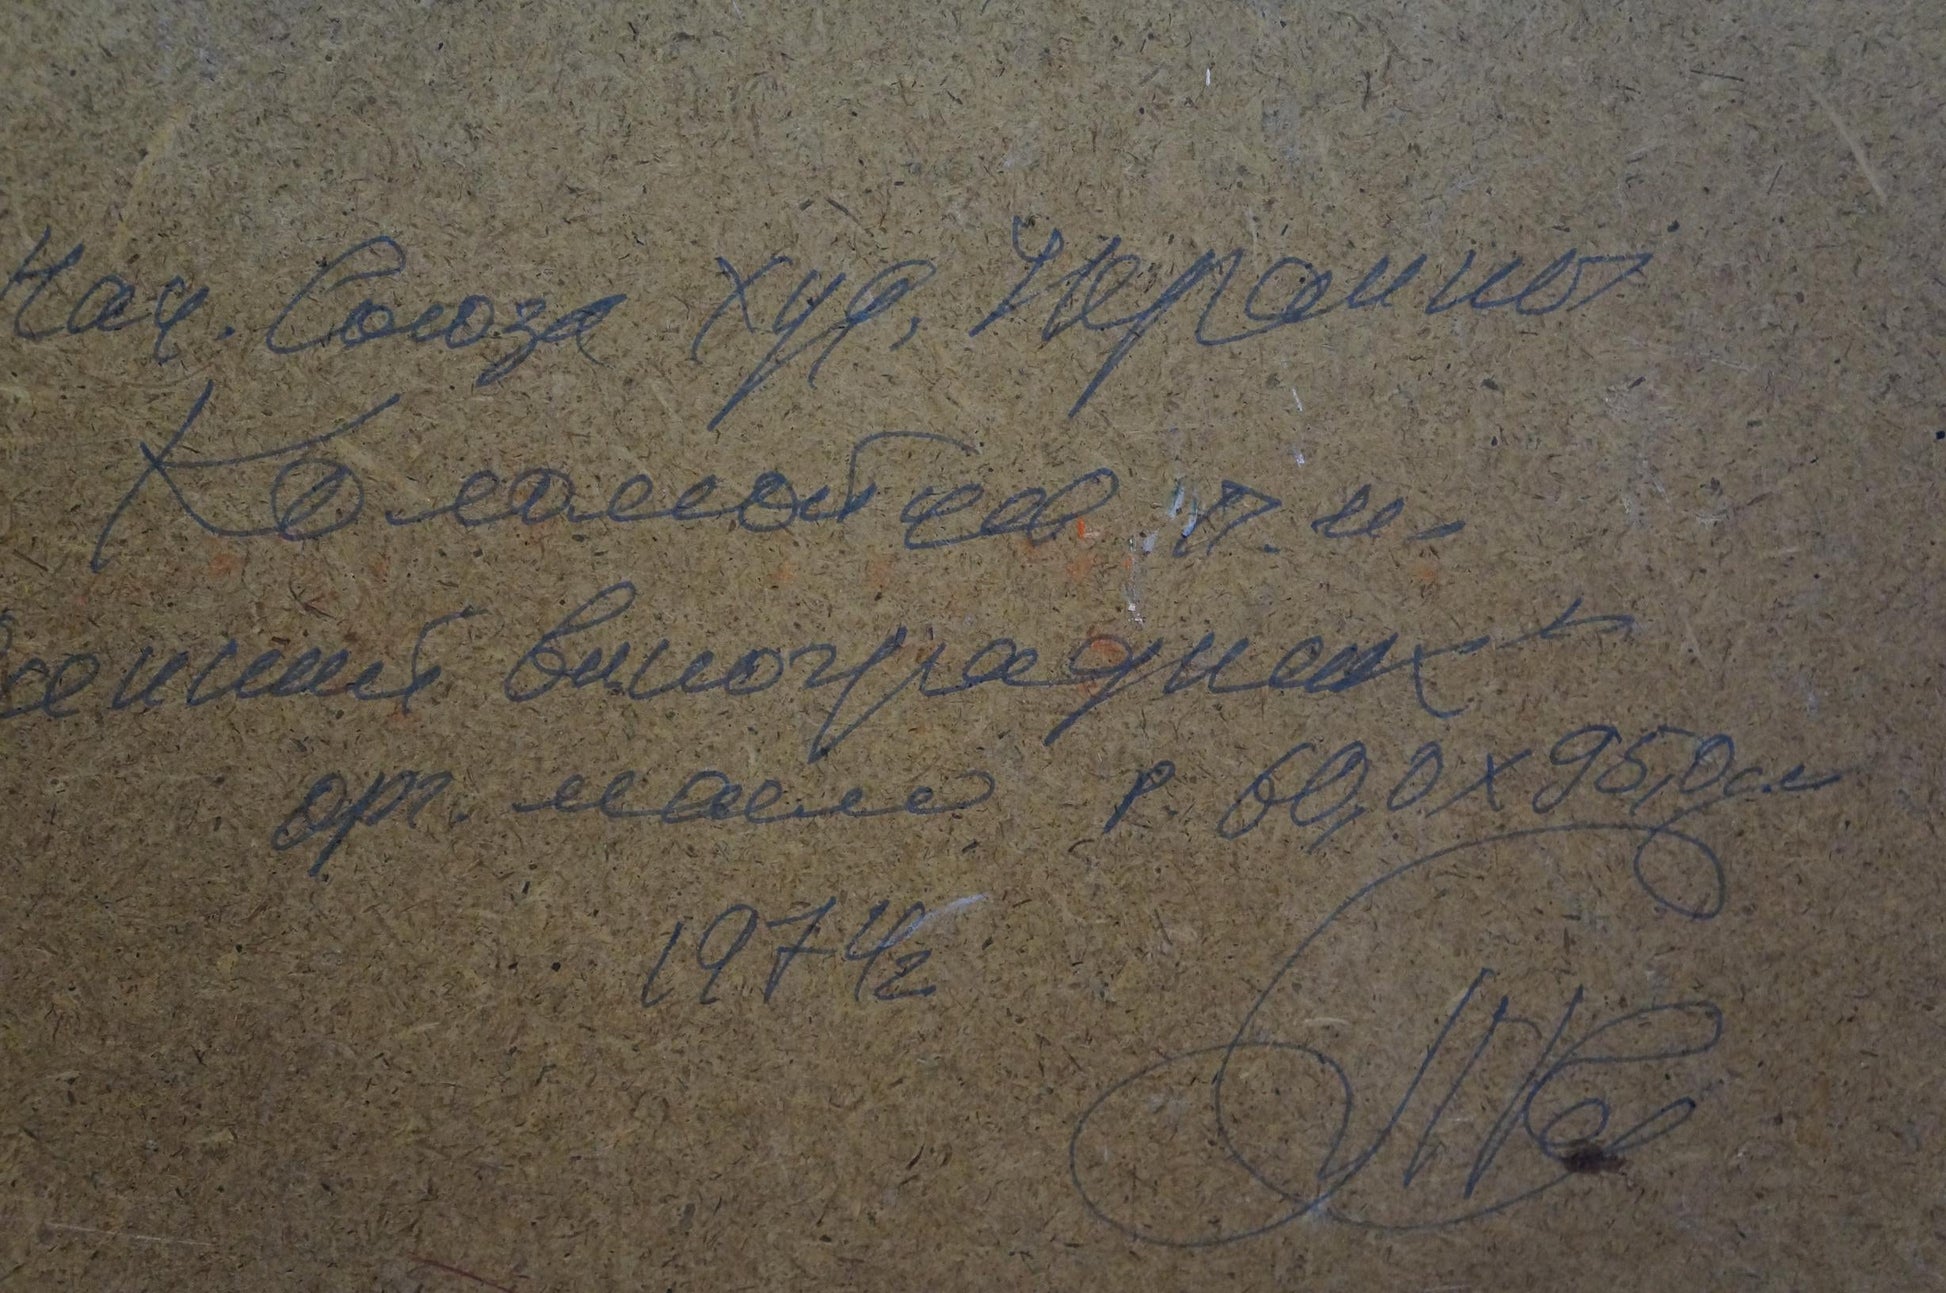 Член Союза худ. Украины
Коломойцев П. И.
Осенний виноградник
орг. масло р. 60,0х95,0см
1974г